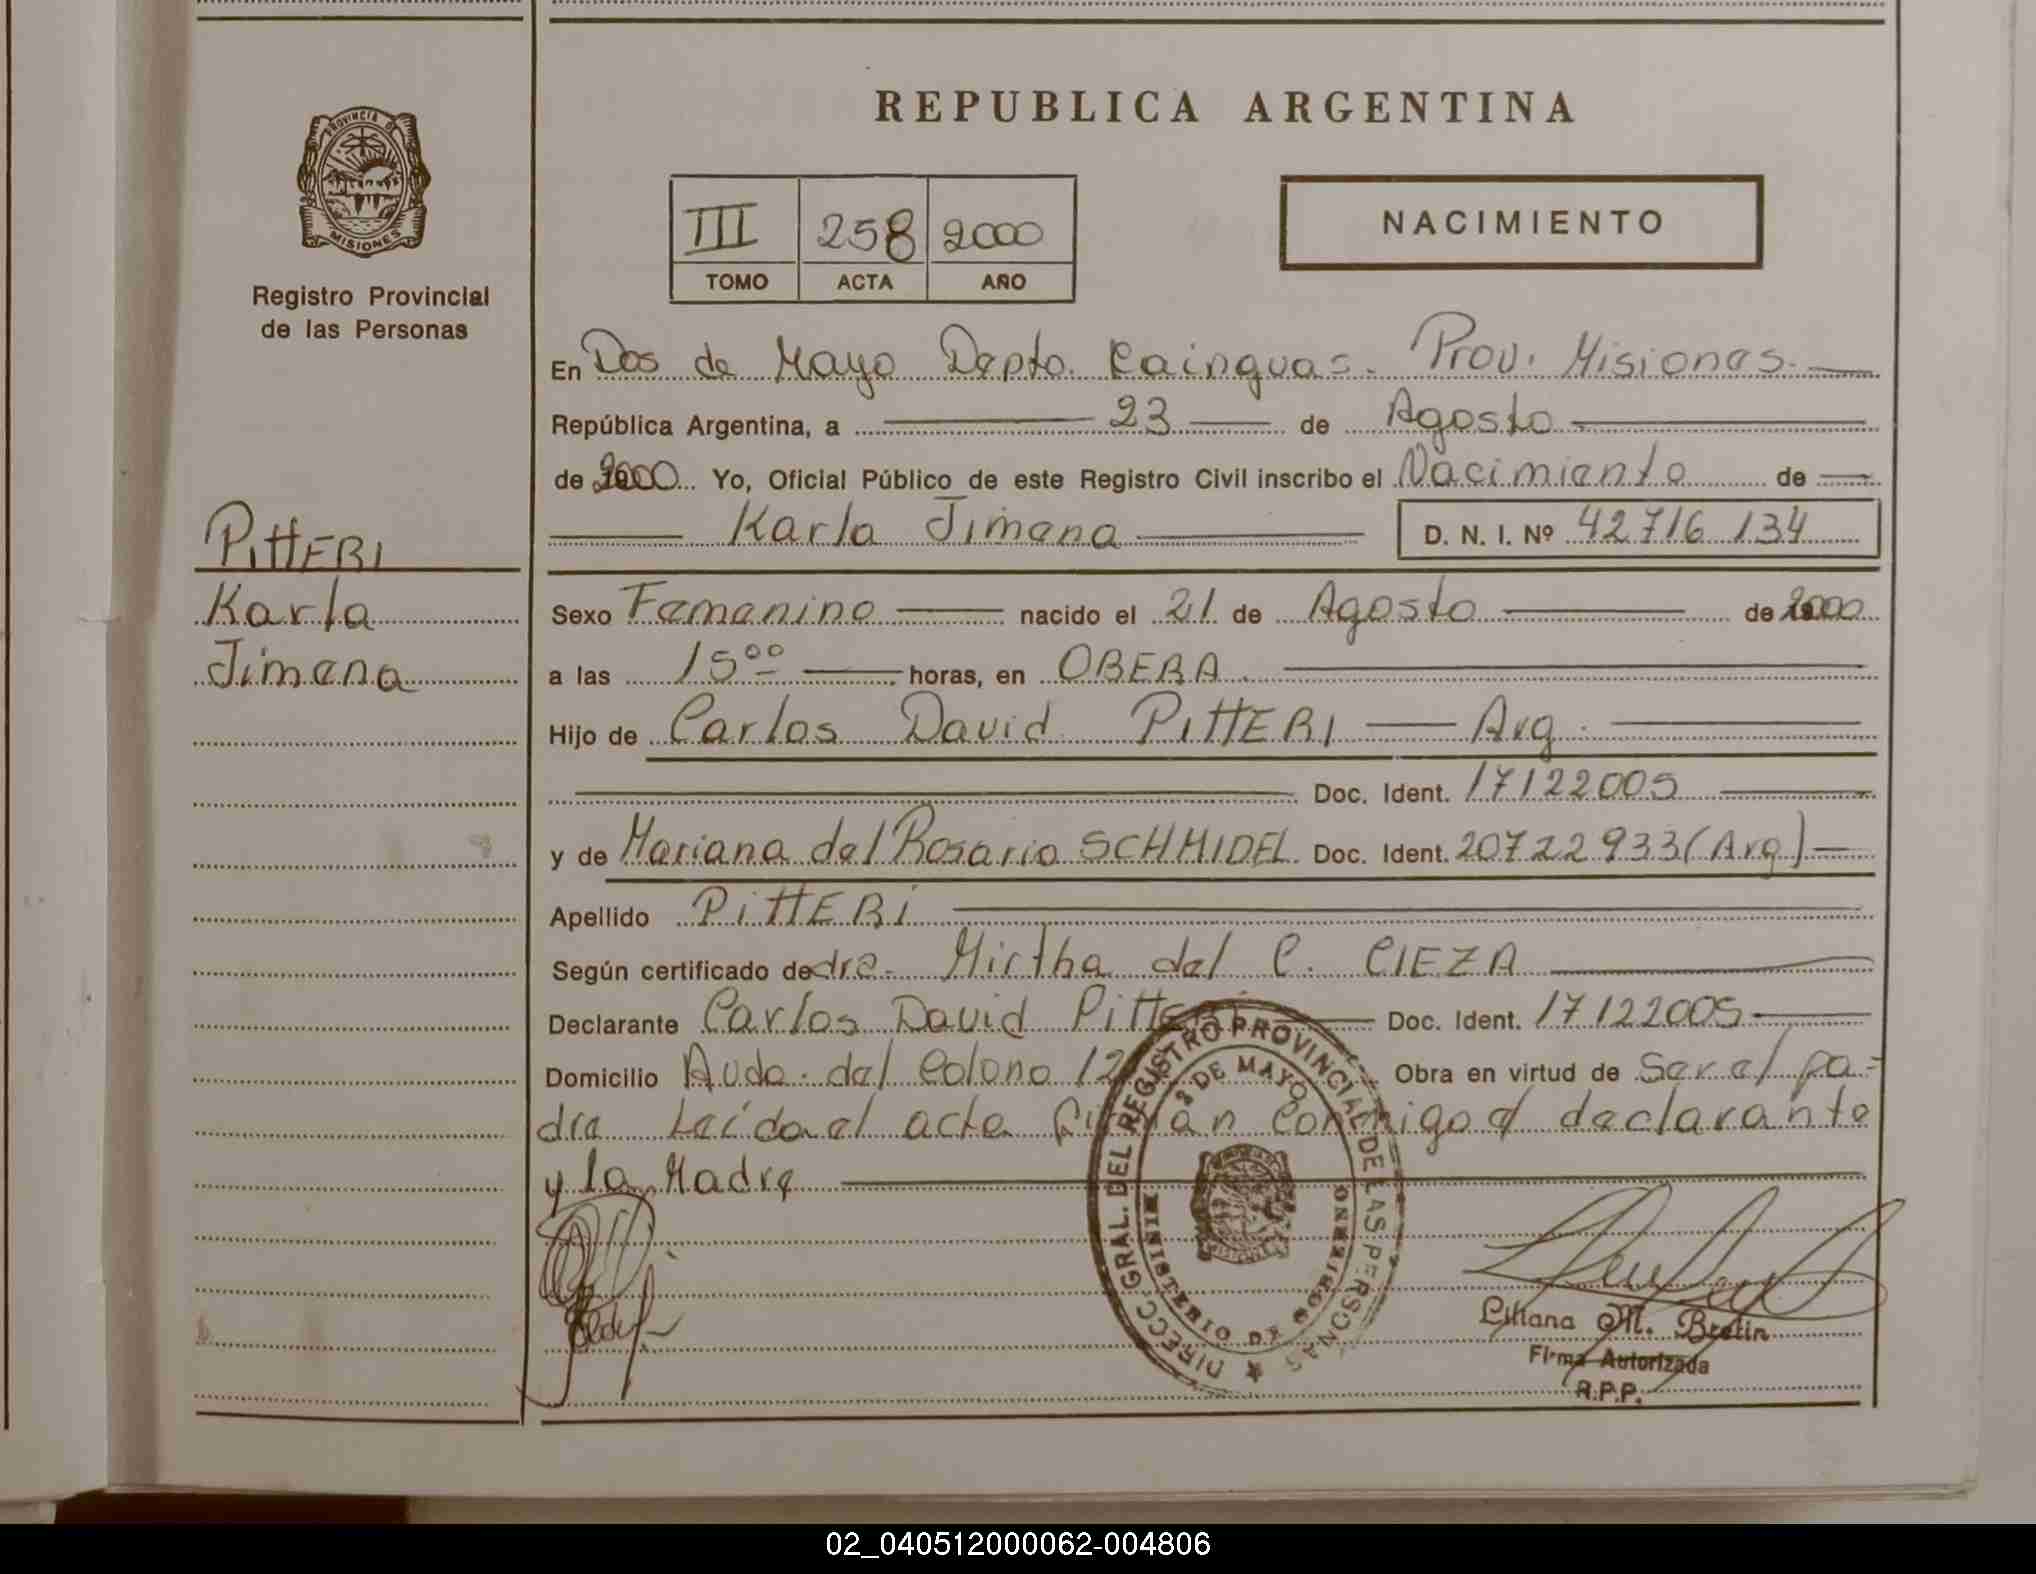 PROVINCIA DE
MISIONES
Registro Provincial
de las Personas
PittERI
Karla
Jimena
REPUBLICA ARGENTINA
III 258 2000
TOMO ACTA AÑO
NACIMIENTO
En Dos de Mayo Depto. Cainguas. Prov. Misiones.
República Argentina, a 23 de Agosto
de 2000 Yo, Oficial Público de este Registro Civil inscribo el Nacimiento de
Karla Jimena D. N. I. Nº 42716134
Sexo Femenino nacido el 21 de Agosto de 2000
a las 15ºº horas, en OBERA.
Hijo de Carlos David PittERI Arg.
Doc. Ident. 17122005
y de Mariana del Rosario SCHMIDEL Doc. Ident. 20722933 (Arg)
Apellido PittERi
Según certificado de dra. Mirtha del C. CIEZA
Declarante Carlos David Pitteri Doc. Ident. 17122005
Domicilio Avda. del Colono 12 Obra en virtud de ser el pa-
dre Leída el acta firman conmigo el declarante
y la Madre
DIRECC. GRAL. DEL REGISTRO PROVINCIAL DE LAS PERSONAS
2 DE MAYO
MINISTERIO DE GOBIERNO
Liliana M. Bretin
Firma Autorizada
R.P.P.
02_040512000062-004806